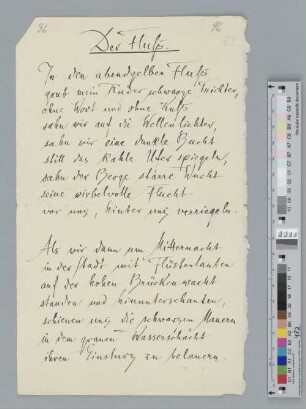 96
96
Der Fluß.
In den abendgelben Fluß
grub mein Ruder schwarze Trichter,
ohne Wort und ohne Kuß
sahn wir auf die Wellenlichter,
sahn wir eine dunkle Bucht
still das kahle Ufer spiegeln,
sahn der Berge starre Wucht
seine wirbelvolle Flucht
vor uns, hinter uns verriegeln.
Als wir dann um Mitternacht
in der Stadt mit Flüsterlauten
auf der hohen Brückenwacht
standen und hinunterschauten,
schienen uns die schwarzen Mauern
in dem grauen Wasserschacht
ihren Einsturz zu belauern.